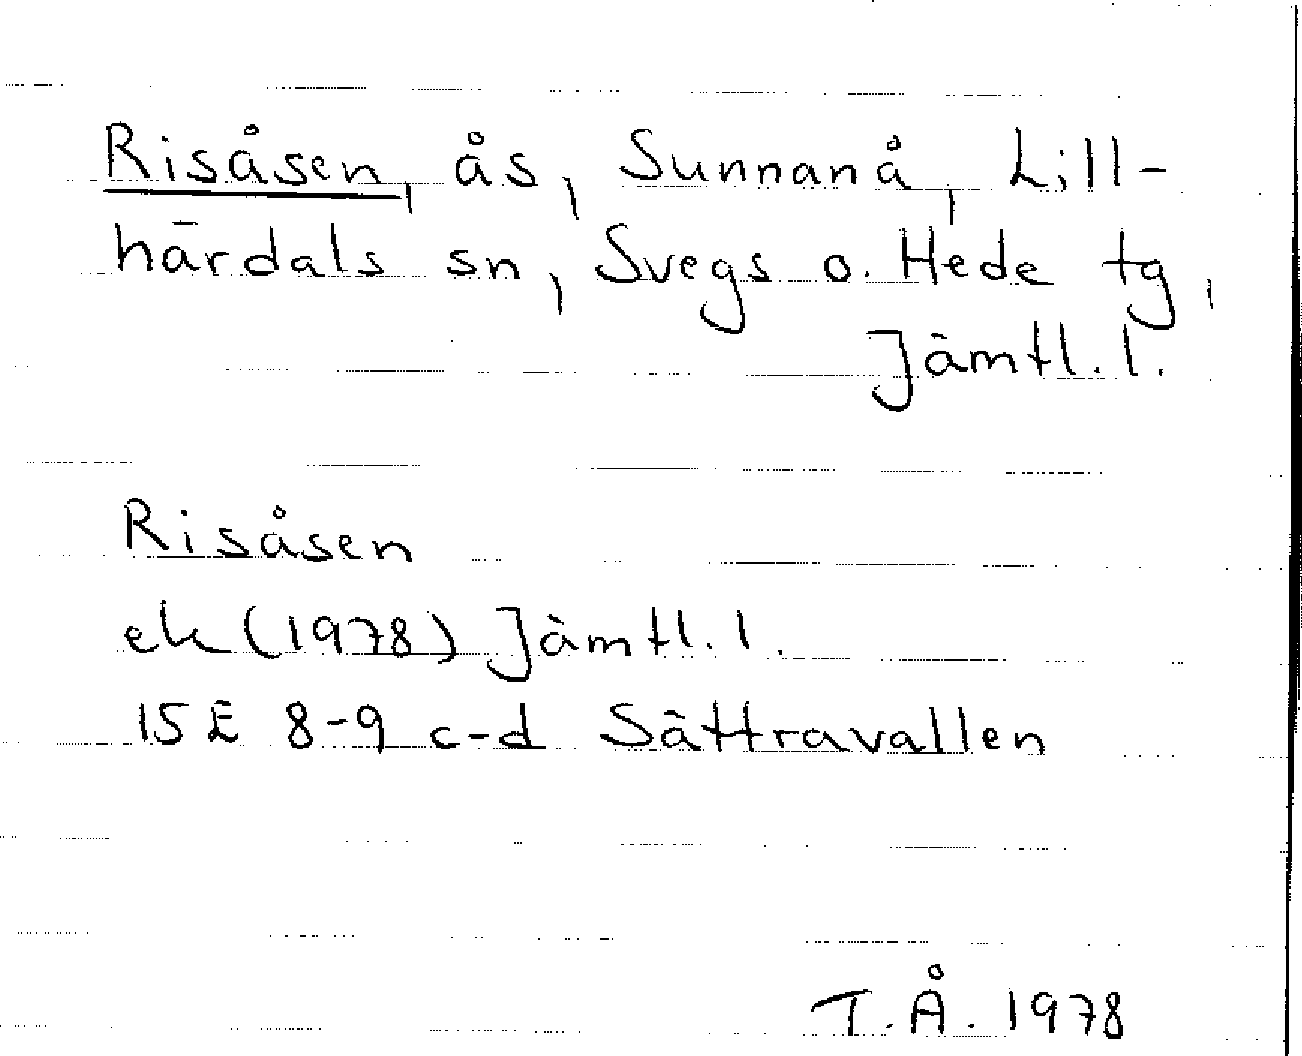 Risåsen, ås, Sunnanå, Lill-
härdals sn, Svegs o. Hede tg,
Jämtl. l.
Risåsen
ek (1978) Jämtl. l.
15E 8-9 c-d Sättravallen
T.Å. 1978